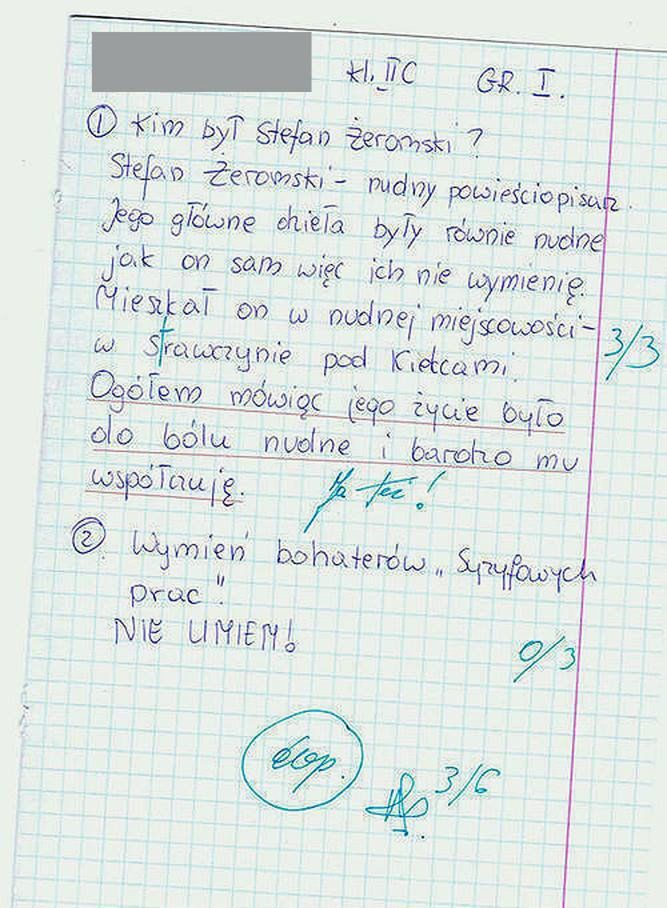 kl. II C GR. I.
① Kim był Stefan Żeromski?
Stefan Żeromski - nudny powieściopisarz.
Jego główne dzieła były równie nudne
jak on sam więc ich nie wymienię.
Mieszkał on w nudnej miejscowości -
3/3
w Strawczynie pod Kielcami.
Ogółem mówiąc jego życie było
do bólu nudne i bardzo mu
współczuję. Ja też!
② Wymień bohaterów „Syzyfowych
prac".
NIE UMIEM!
0/3
dop.
3/6